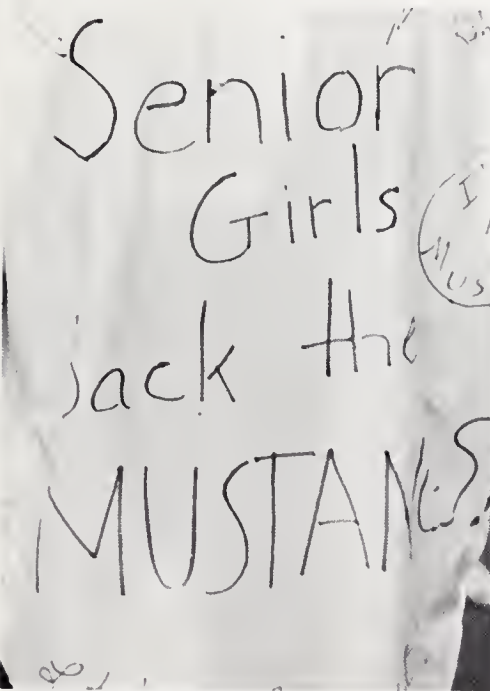 Senior
Girls
jack the
MUSTANG?